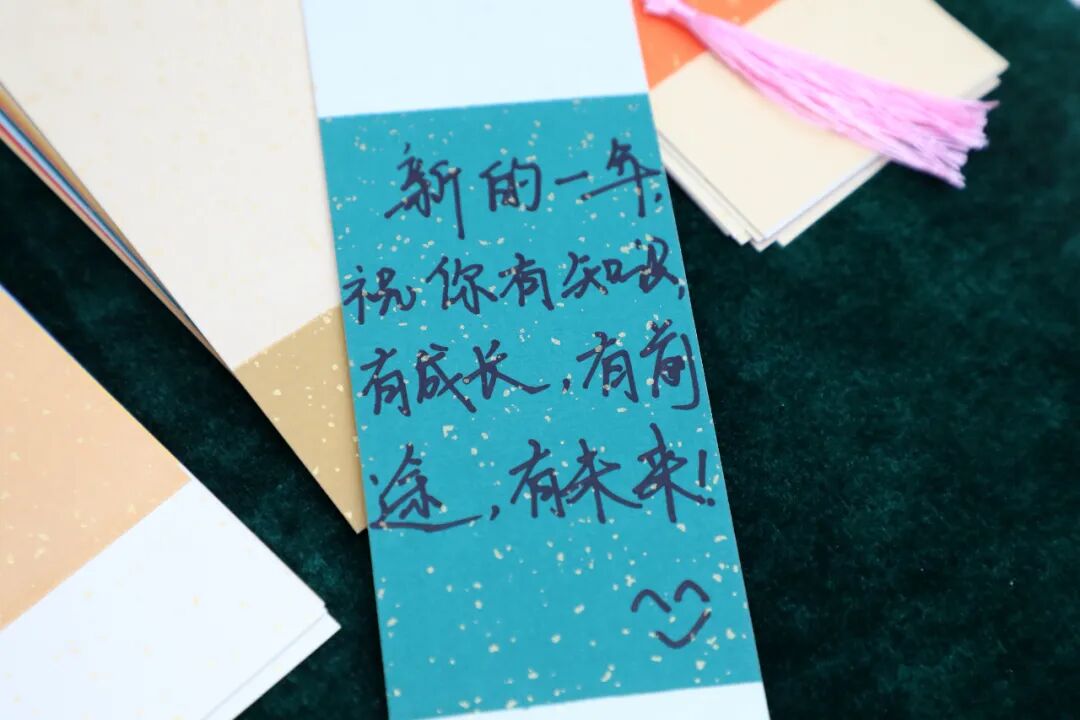 新的一年，
祝你有知识，
有成长，有前
途，有未来！